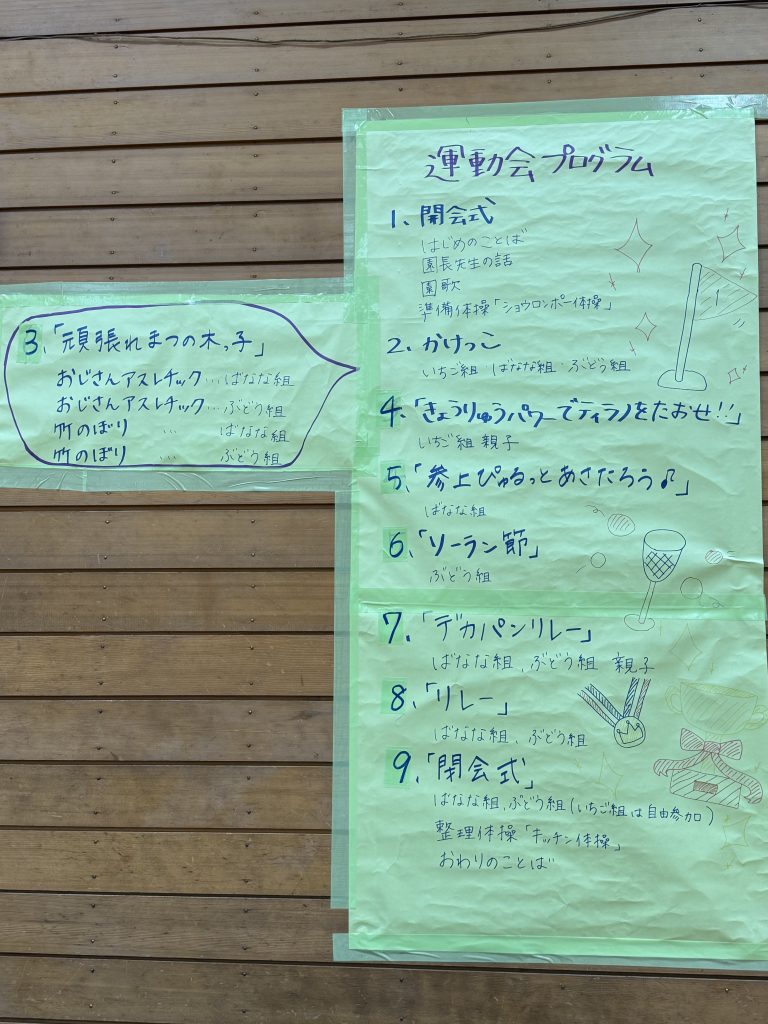 運動会プログラム
1、開会式
はじめのことば
園長先生の話
園歌
準備体操「ショウロンポー体操」
2、かけっこ
いちご組・ばなな組・ぶどう組
3、「頑張れまつの木っ子」
おじさんアスレチック…ばなな組
おじさんアスレチック…ぶどう組
竹のぼり … ばなな組
竹のぼり … ぶどう組
4、「きょうりゅうパワーでティラノをたおせ!!」
いちご組 親子
5、「参上ぴゅるっとあさたろう♪」
ばなな組
6、「ソーラン節」
ぶどう組
7、「デカパンリレー」
ばなな組、ぶどう組 親子
8、「リレー」
ばなな組、ぶどう組
9、「閉会式」
ばなな組、ぶどう組(いちご組は自由参加)
整理体操「キッチン体操」
おわりのことば
1